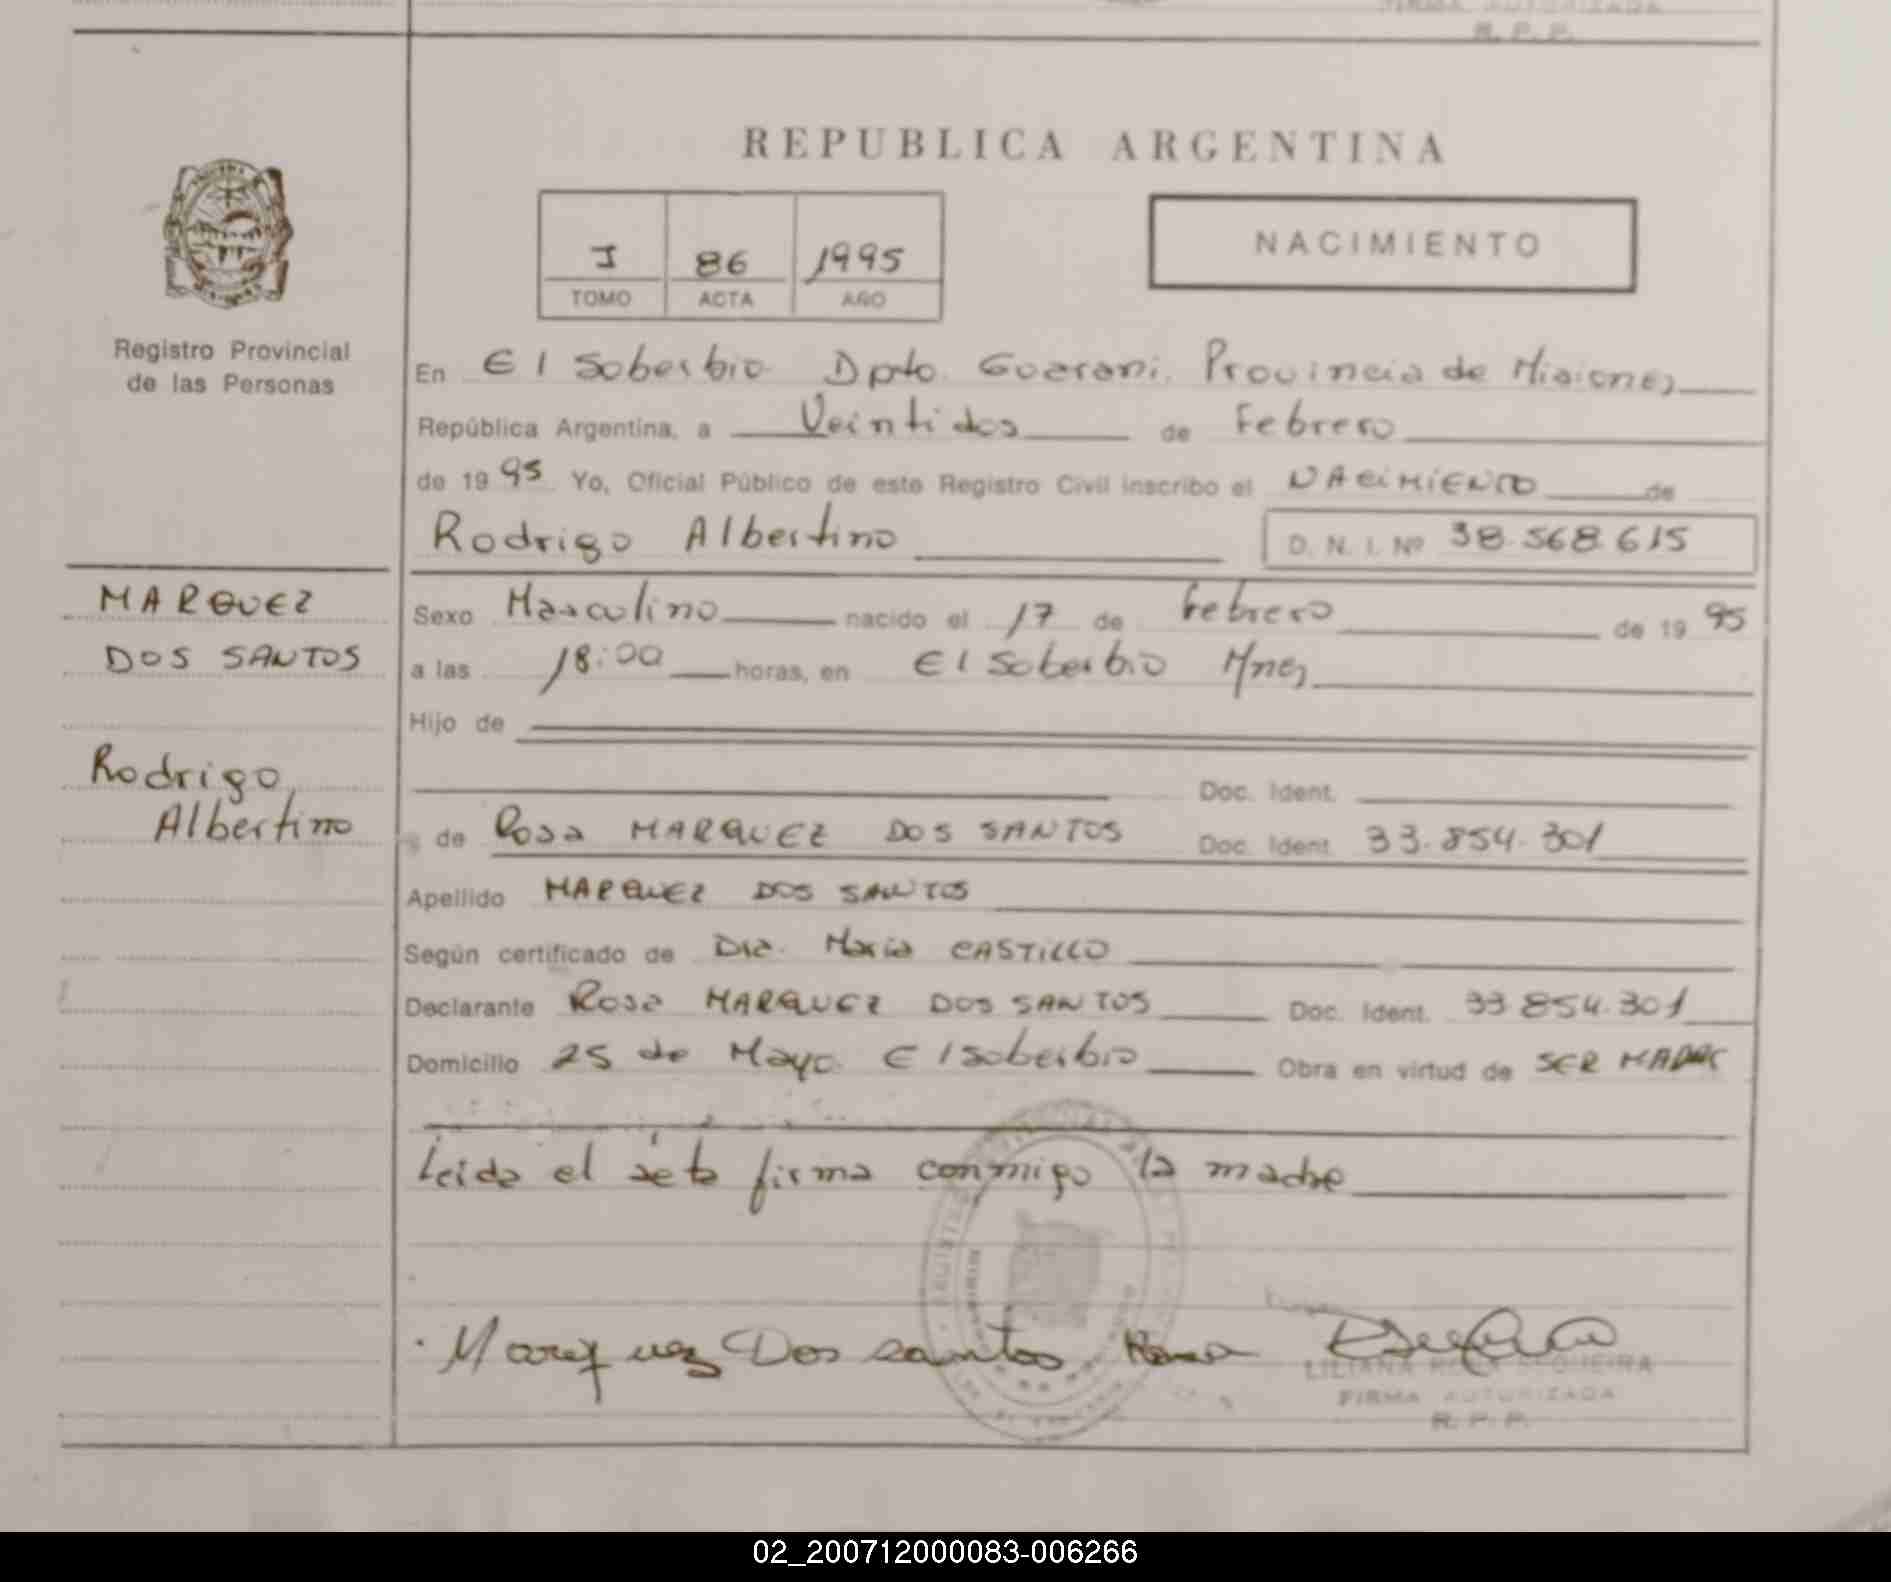 FIRMA AUTORIZADA
R. P. P.
REPUBLICA ARGENTINA
I 86 1995
TOMO ACTA AÑO
NACIMIENTO
Registro Provincial
de las Personas
En El Soberbio Dpto. Guarani. Provincia de Misiones
República Argentina, a Veintidos de Febrero
de 19 95 Yo, Oficial Público de este Registro Civil inscribo el NACIMIENTO de
Rodrigo Albertino D. N. I. Nº 38.568.615
MARQUEZ
DOS SANTOS
Rodrigo
Albertino
Sexo Masculino nacido el 17 de febrero de 19 95
a las 18:00 horas, en El Soberbio Mnes
Hijo de
Doc. Ident.
de Rosa MARQUEZ DOS SANTOS Doc. Ident. 33.854.301
Apellido MARQUEZ DOS SANTOS
Según certificado de Dra. Maria CASTILLO
Declarante Rosa MARQUEZ DOS SANTOS Doc. Ident. 33.854.301
Domicilio 25 de Mayo. El Soberbio Obra en virtud de SER MADRE
Leida el acta firma conmigo la madre
Marquez Dos santos Rosa
LILIANA ROSA SEQUEIRA
FIRMA AUTORIZADA
R. P. P.
02_200712000083-006266